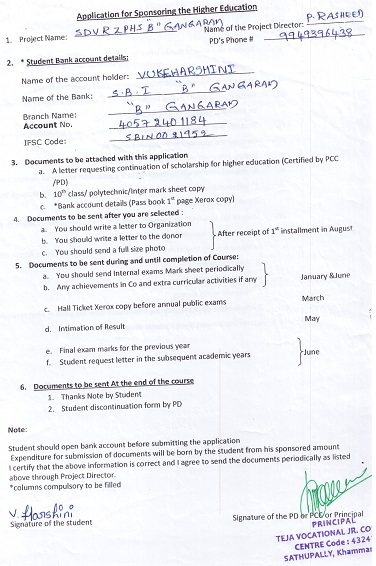 Application for Sponsoring the Higher Education
1. Project Name: SDVRZPHS "B" GANGARAM Name of the Project Director: P. RASHEED
PD's Phone # 9949396438
2. * Student Bank account details:
Name of the account holder: V.UKEHARSHINI
Name of the Bank: S.B.I "B" GANGARAM
Branch Name: "B" GANGARAM
Account No. 40572401184
IFSC Code: SBIN0021952
3. Documents to be attached with this application
a. A letter requesting continuation of scholarship for higher education (Certified by PCC
/PD)
b. 10th class/ polytechnic/Inter mark sheet copy
c. *Bank account details (Pass book 1st page Xerox copy)
4. Documents to be sent after you are selected :
a. You should write a letter to Organization
b. You should write a letter to the donor
After receipt of 1st installment in August
c. You should send a full size photo
5. Documents to be sent during and until completion of Course:
a. You should send Internal exams Mark sheet periodically
b. Any achievements in Co and extra curricular activities if any
January &June
c. Hall Ticket Xerox copy before annual public exams March
d. Intimation of Result May
e. Final exam marks for the previous year
f. Student request letter in the subsequent academic years
June
6. Documents to be sent At the end of the course
1. Thanks Note by Student
2. Student discontinuation form by PD
Note:
Student should open bank account before submitting the application
Expenditure for submission of documents will be born by the student from his sponsored amount
I certify that the above information is correct and I agree to send the documents periodically as listed
above through Project Director.
*columns compulsory to be filled
V. Harshini
Signature of the student
Signature of the PD or PCC or Principal
PRINCIPAL
TEJA VOCATIONAL JR. CO
CENTRE Code : 4324
SATHUPALLY, Khammam